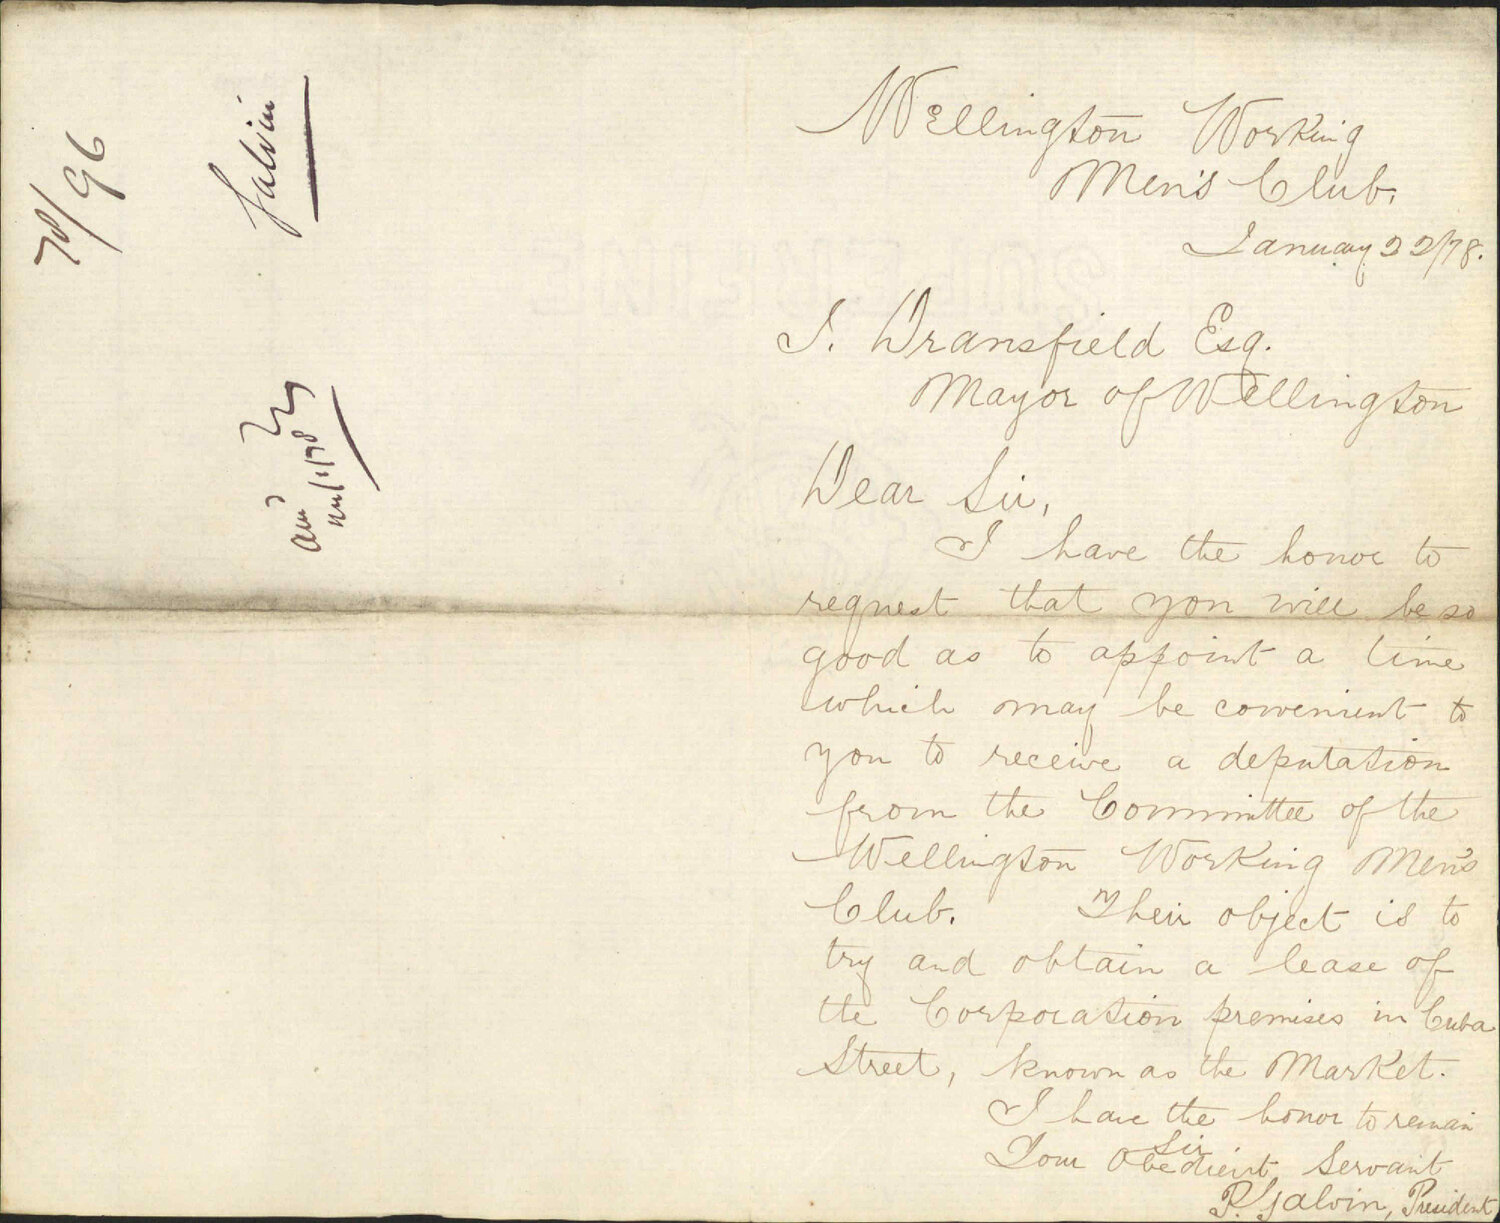 78/96
Galvin
ans
Wellington Working
Men's Club.
January 22/78.
J. Dransfield Esq.
Mayor of Wellington
Dear Sir,
I have the honor to
request that you will be so
good as to appoint a time
which may be convenient to
you to receive a deputation
from the Committee of the
Wellington Working Men's
Club. Their object is to
try and obtain a lease of
the Corporation premises in Cuba
Street, known as the Market.
I have the honor to remain
Sir
Your obedient servant
P. Galvin, President